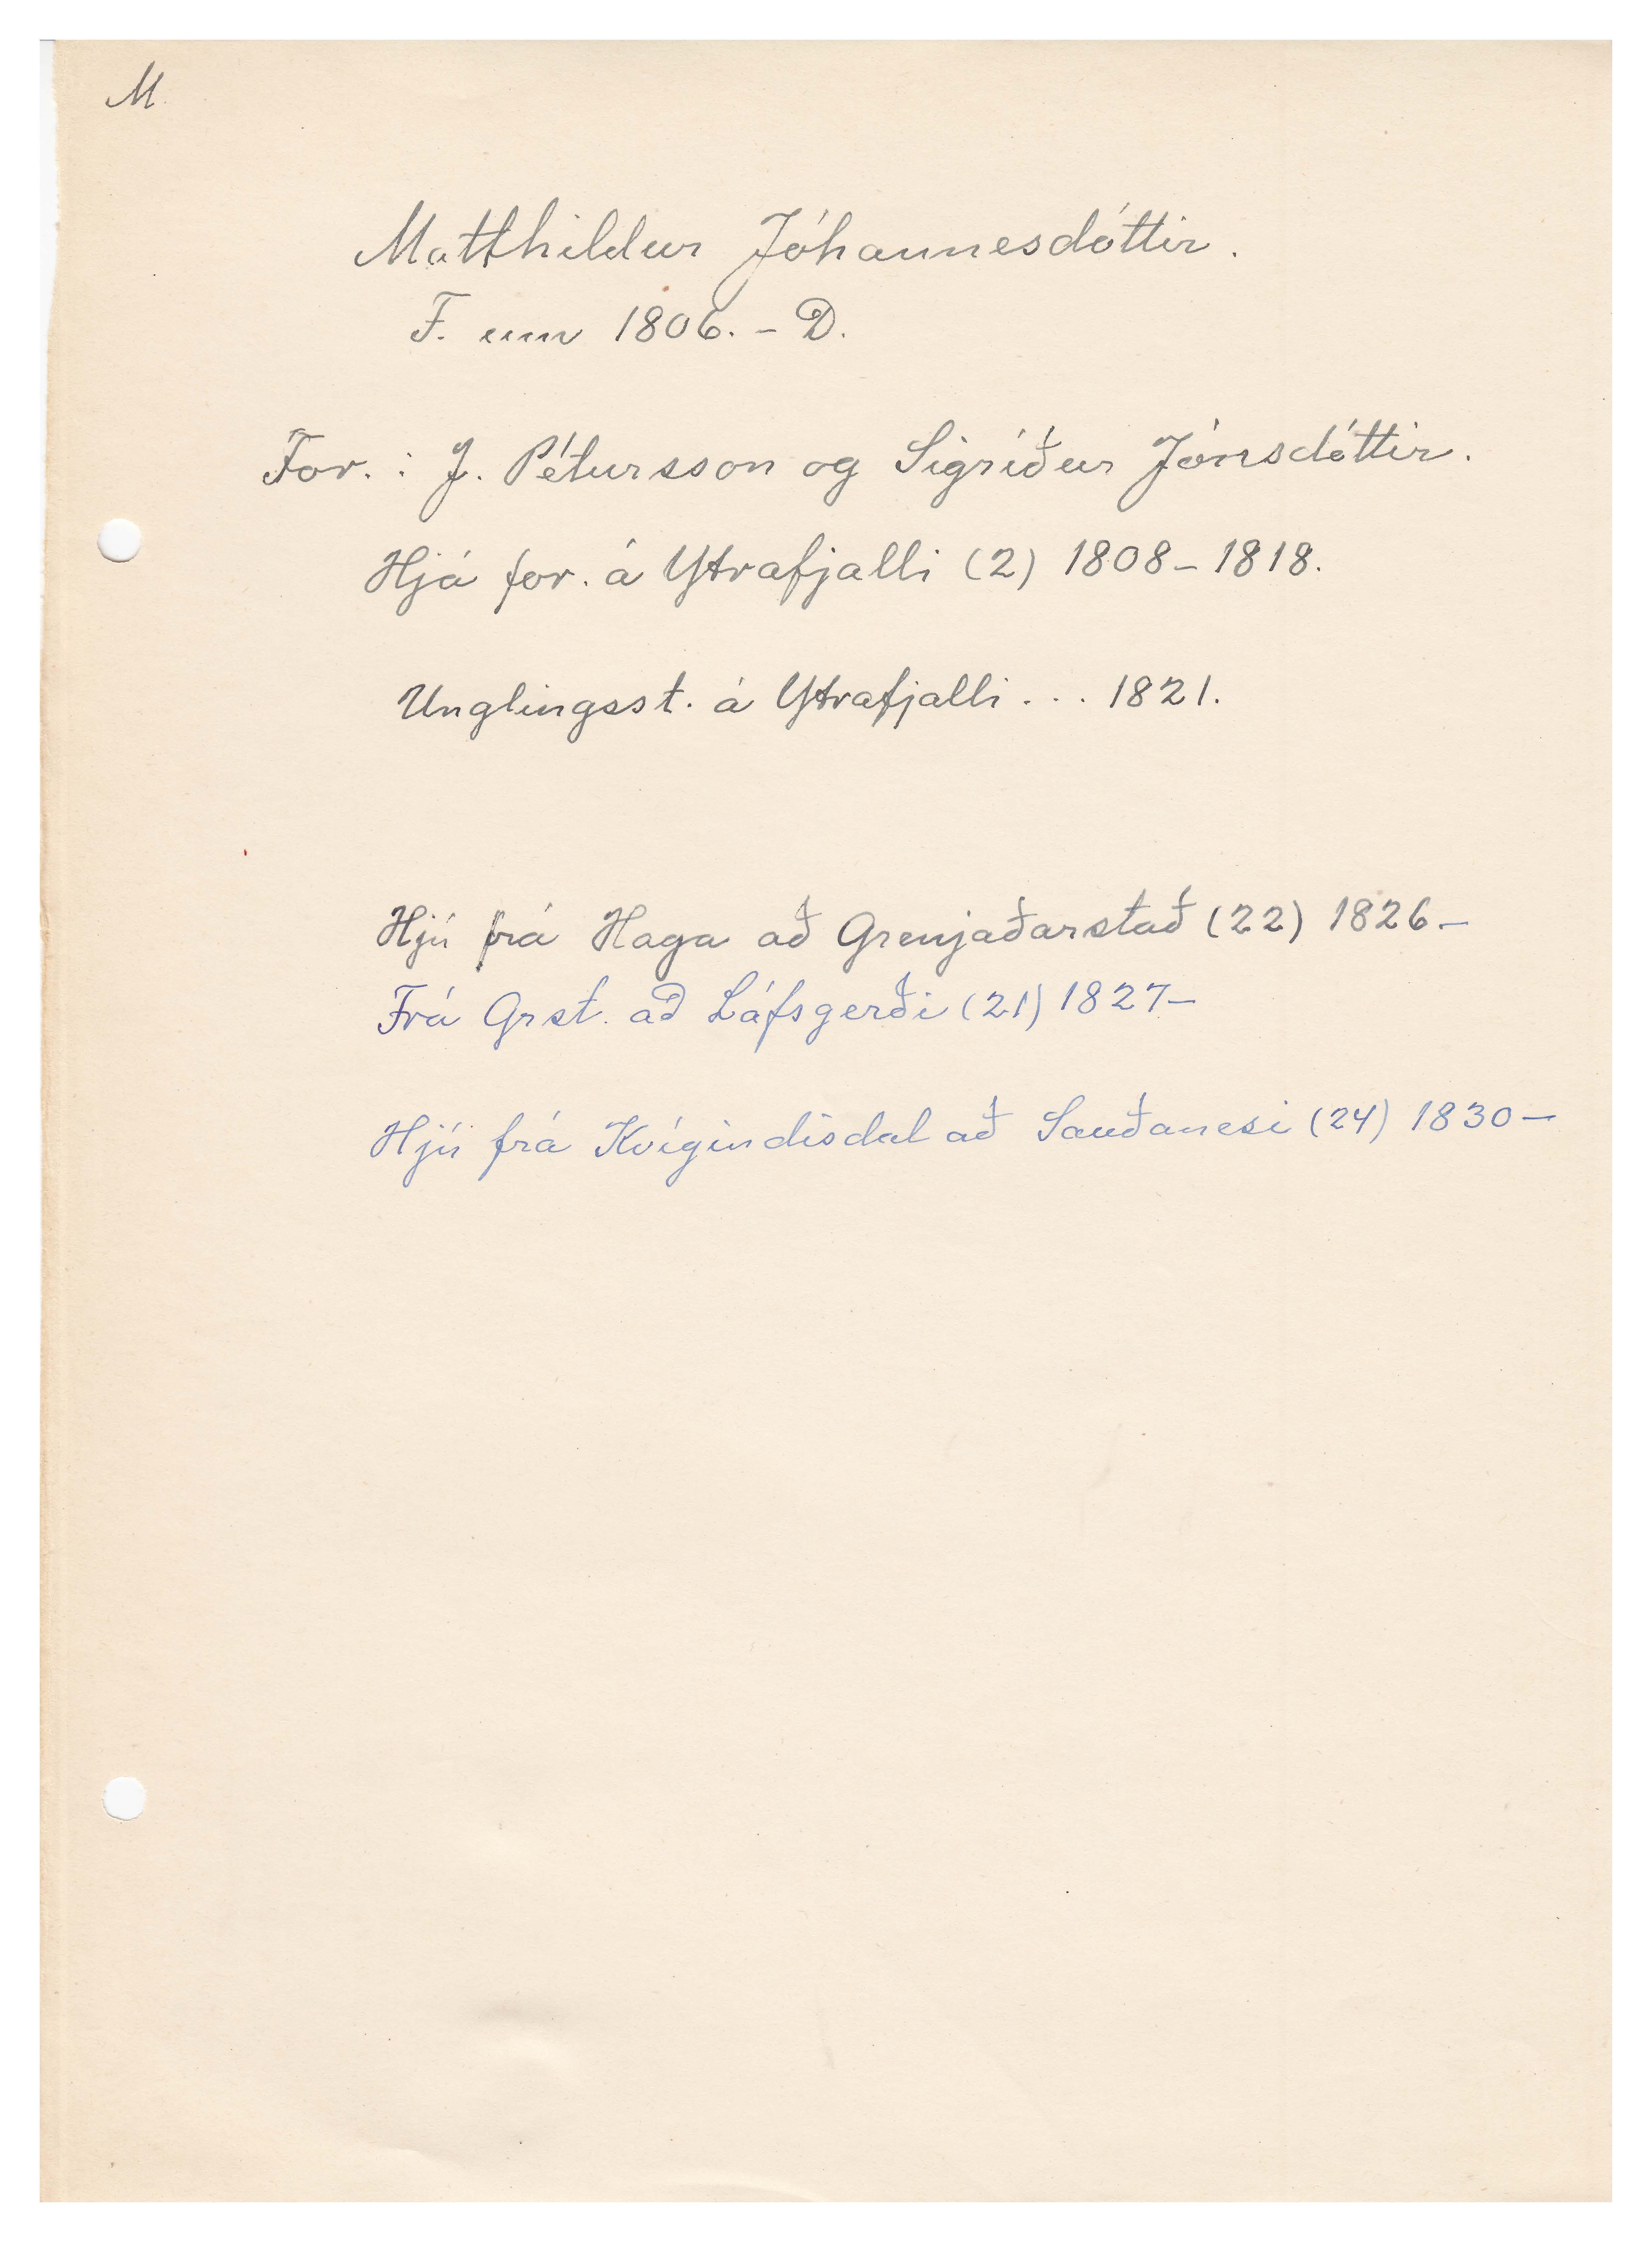 M
Matthildur Jóhannesdóttir.
F. um 1806. - D.
For. : J. Pétursson og Sigríður Jónsdóttir.
Hjá for. á Ytrafjalli (2) 1808-1818.
Unglingsst. á Ytrafjalli ... 1821.
Hjú frá Haga að Grenjaðarstað (22) 1826-
Frá Grst. að Láfsgerði (21) 1827-
Hjú frá Kvígindisdal að Sauðanesi (24) 1830-